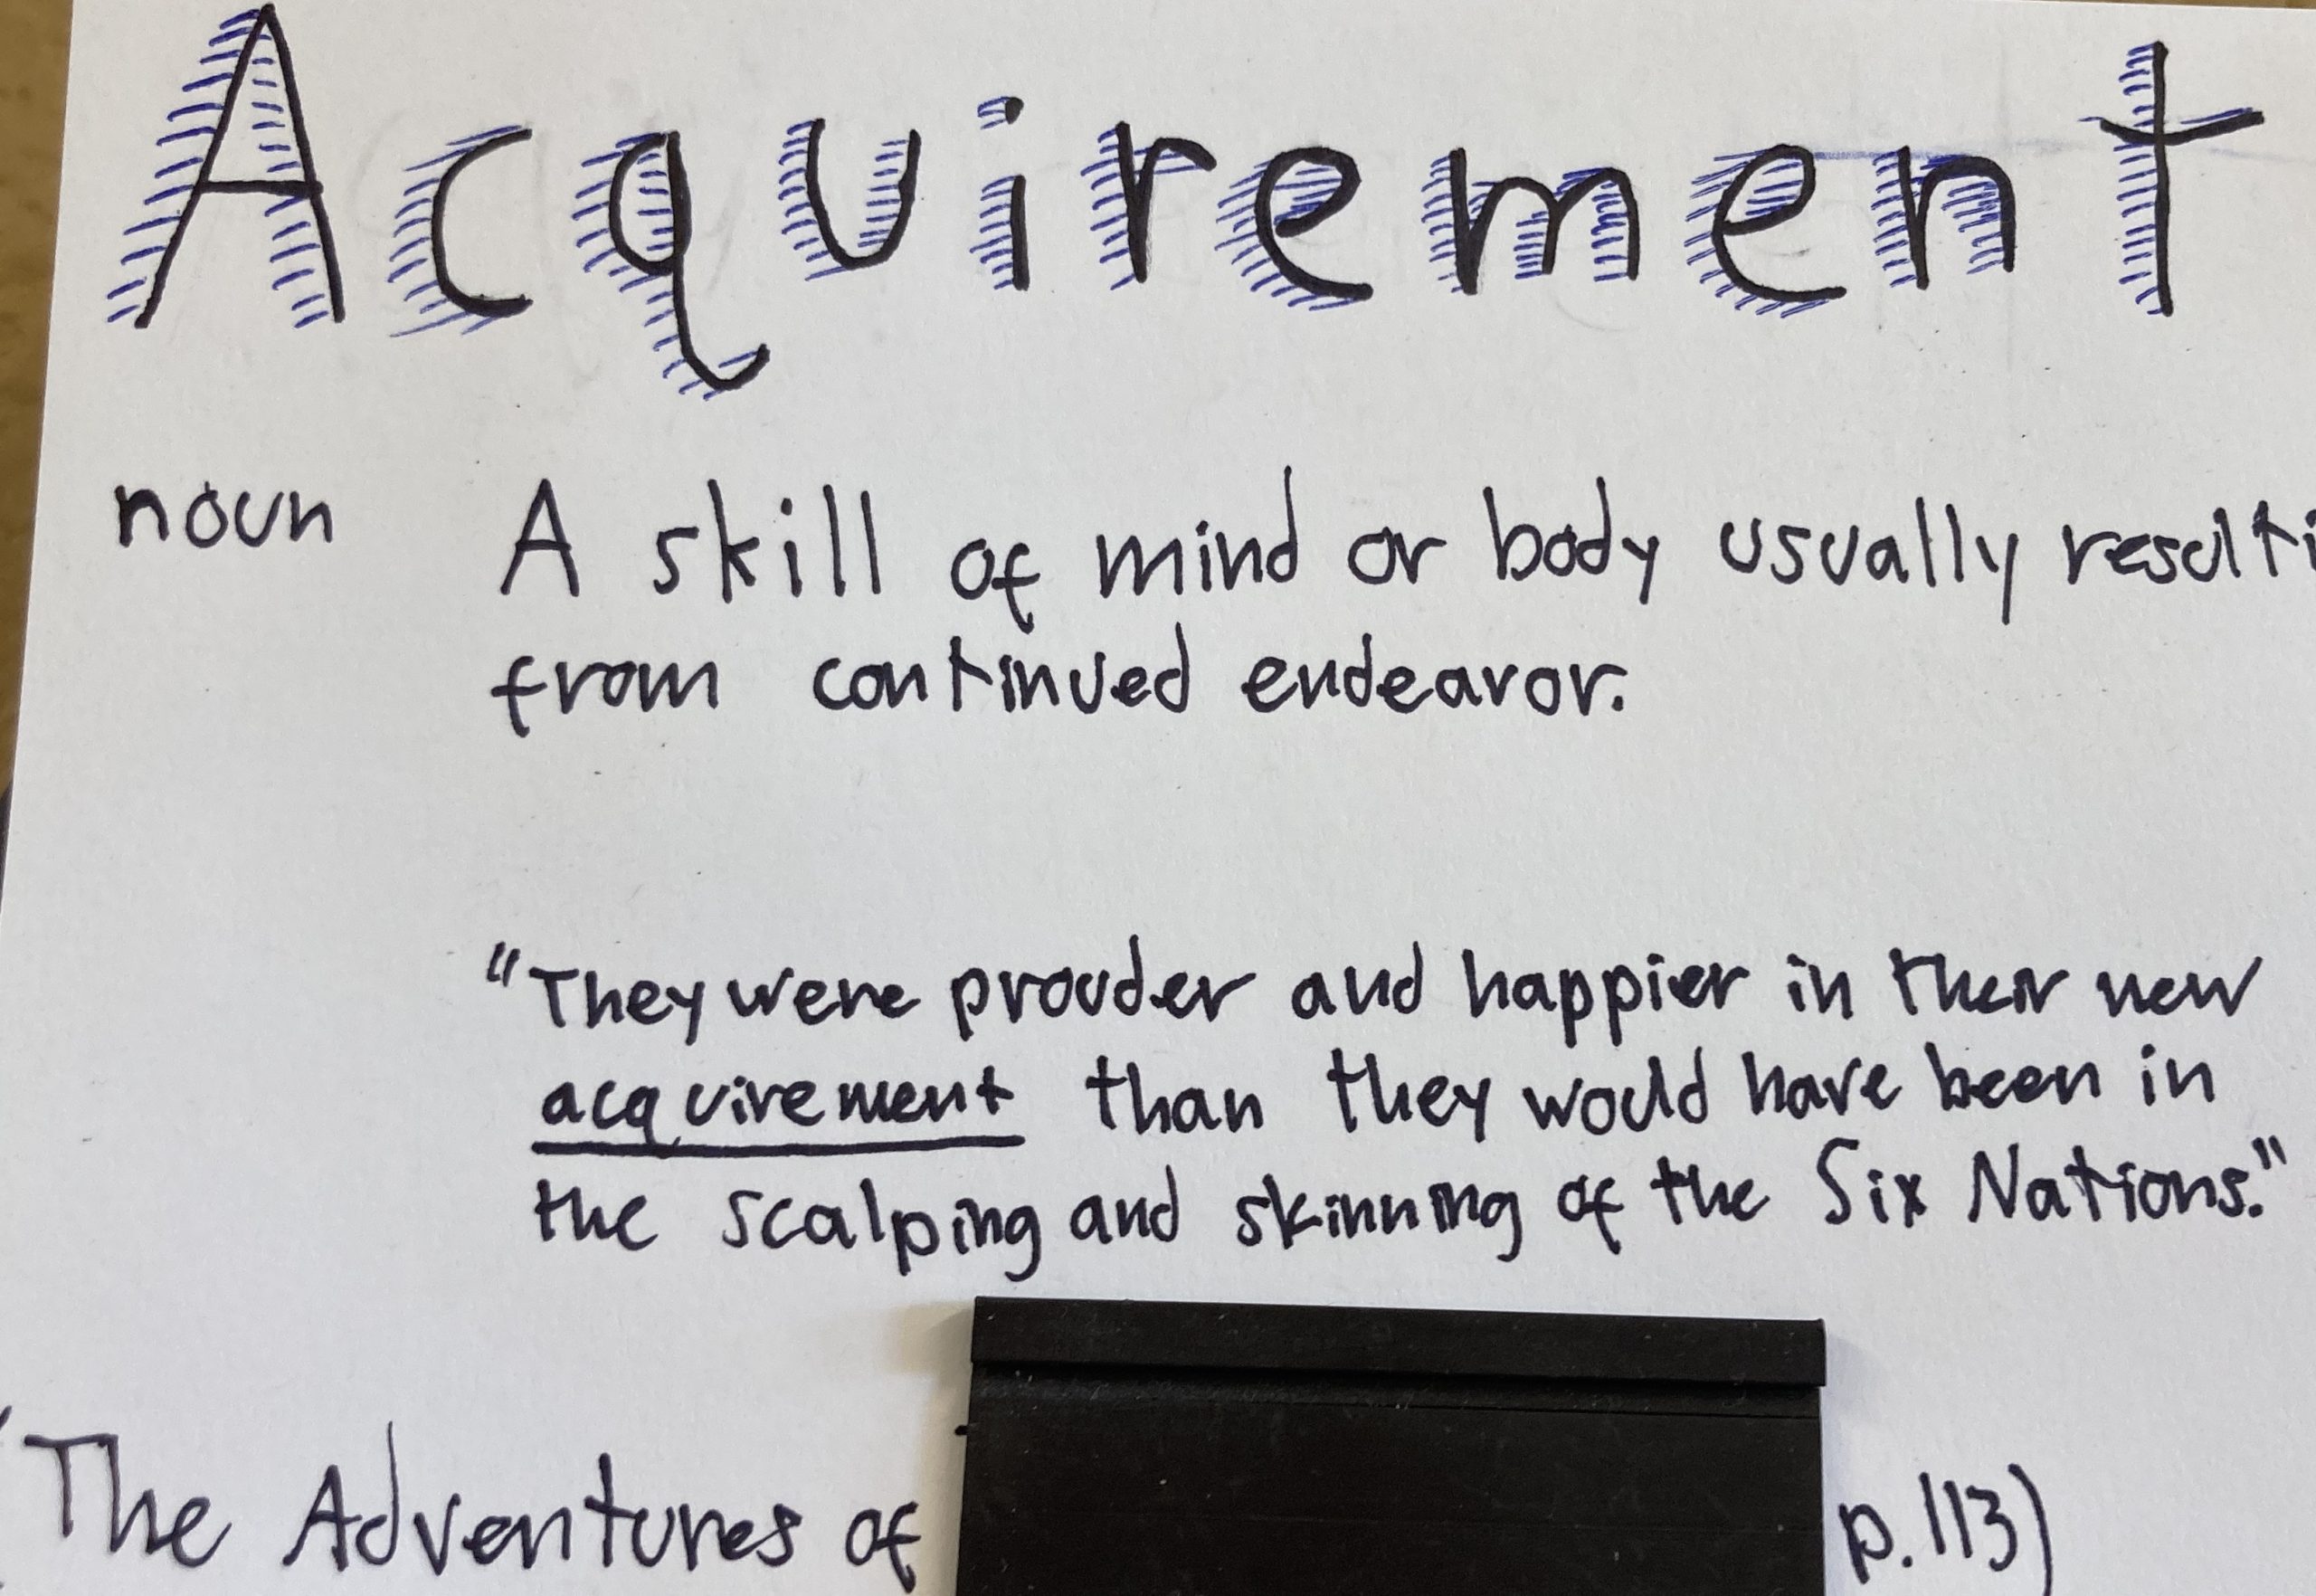 Acquirement
noun A skill of mind or body usually resulti
from continued endeavor.
"They were prouder and happier in their new
acquirement than they would have been in
the scalping and skinning of the Six Nations."
(The Adventures of p.113)